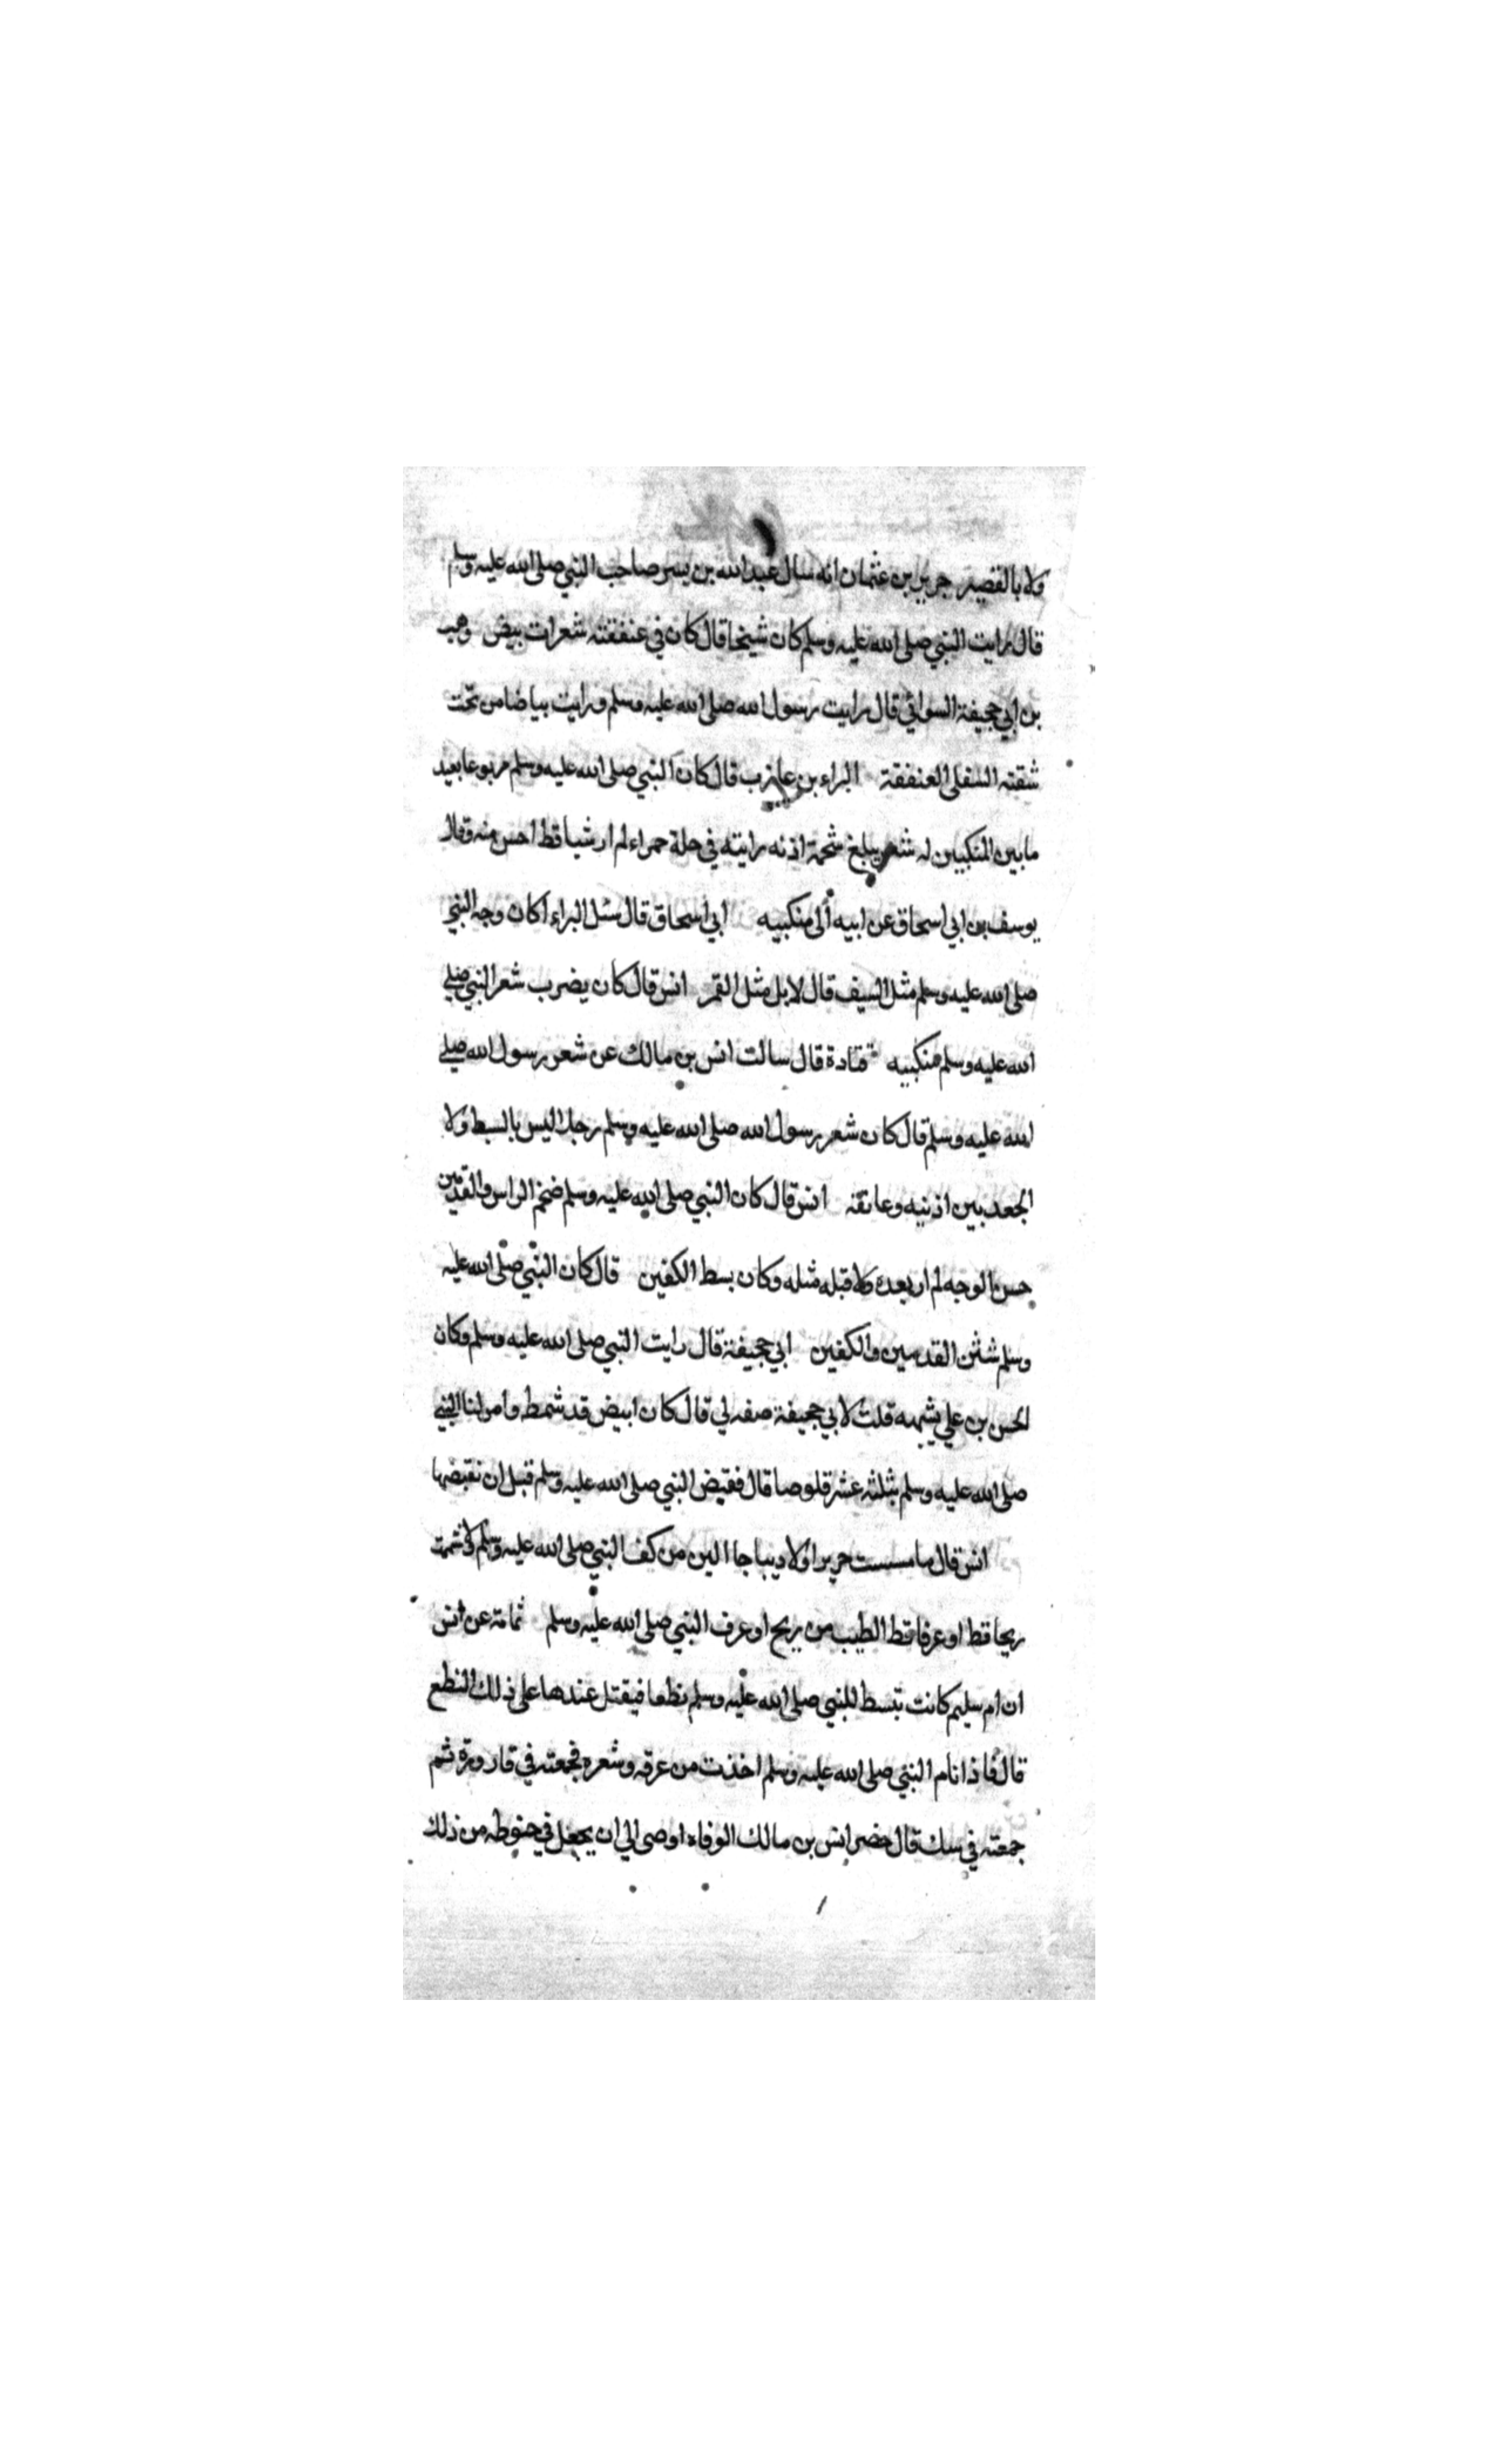 ولا بالقصير جرير بن عثمان انه سال عبد الله بن بسر صاحب النبي صلى الله عليه وسلم
قال رايت النبي صلى الله عليه وسلم كان شيخا قال كان في عنفقته شعرات بيض وهب
بن ابي جحيفة السوائي قال رايت رسول الله صلى الله عليه وسلم ورايت بياضا من تحت
شفته السفلى العنفقة البراء بن عازب قال كان النبي صلى الله عليه وسلم مربوعا بعيد
ما بين المنكبين له شعر يبلغ شحمة اذنه رايته في حلة حمراء لم ار شيا قط احسن منه وقال
يوسف بن ابي اسحاق عن ابيه الى منكبيه ابي اسحاق قال سئل البراء اكان وجه النبي
صلى الله عليه وسلم مثل السيف قال لا بل مثل القمر انس قال كان يضرب شعر النبي صلى
الله عليه وسلم منكبيه قتادة قال سالت انس بن مالك عن شعر رسول الله صلى
الله عليه وسلم قال كان شعر رسول الله صلى الله عليه وسلم رجلا ليس بالسبط ولا
الجعد بين اذنيه وعاتقه انس قال كان النبي صلى الله عليه وسلم ضخم الراس والقدمين
حسن الوجه لم ار بعده ولا قبله مثله وكان بسط الكفين قال كان النبي صلى الله عليه
وسلم شثن القدمين والكفين ابي جحيفة قال رايت النبي صلى الله عليه وسلم وكان
الحسن بن علي يشبهه قلت لابي جحيفة صفه لي قال كان ابيض قد شمط وامر لنا النبي
صلى الله عليه وسلم بثلثه عشر قلوصا قال فقبض النبي صلى الله عليه وسلم قبل ان نقبضها
انس قال ما مسست حريرا ولا ديباجا الين من كف النبي صلى الله عليه وسلم ولا شممت
ريحا قط او عرفا قط اطيب من ريح او عرف النبي صلى الله عليه وسلم ثمامة عن انس
ان ام سليم كانت تبسط للنبي صلى الله عليه وسلم نطعا فيقيل عندها على ذلك النطع
قال فاذا نام النبي صلى الله عليه وسلم اخذت من عرقه وشعره فجمعته في قارورة ثم
جمعته في سك قال حضر انس بن مالك الوفاه اوصى الي ان يجعل في حنوطه من ذلك